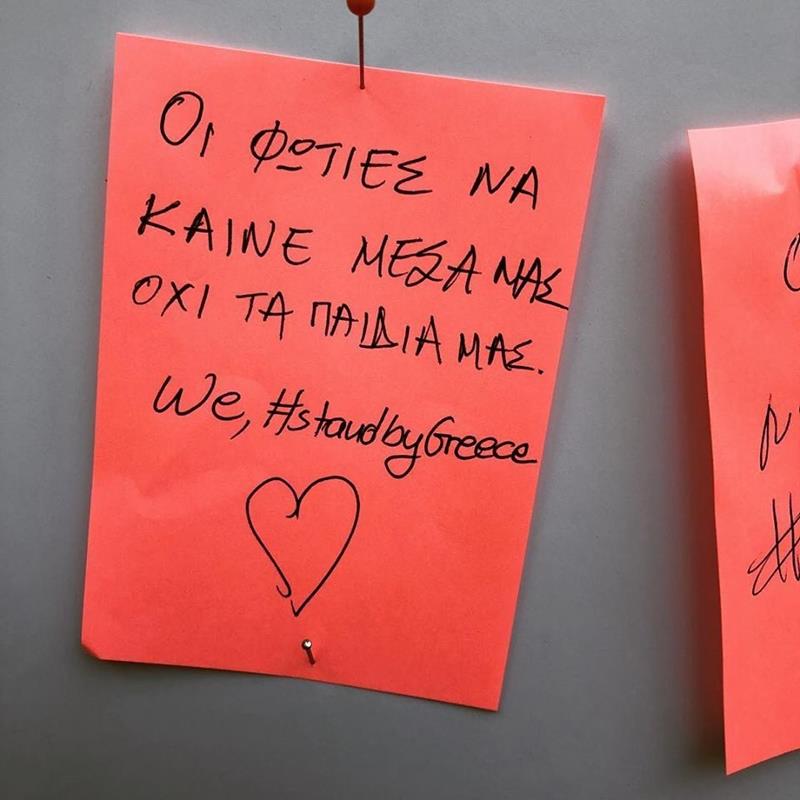 Οι ΦΩΤΙΕΣ ΝΑ
ΚΑΙΝΕ ΜΕΣΑ ΜΑΣ
ΟΧΙ ΤΑ ΠΑΙΔΙΑ ΜΑΣ.
We, #standbyGreece